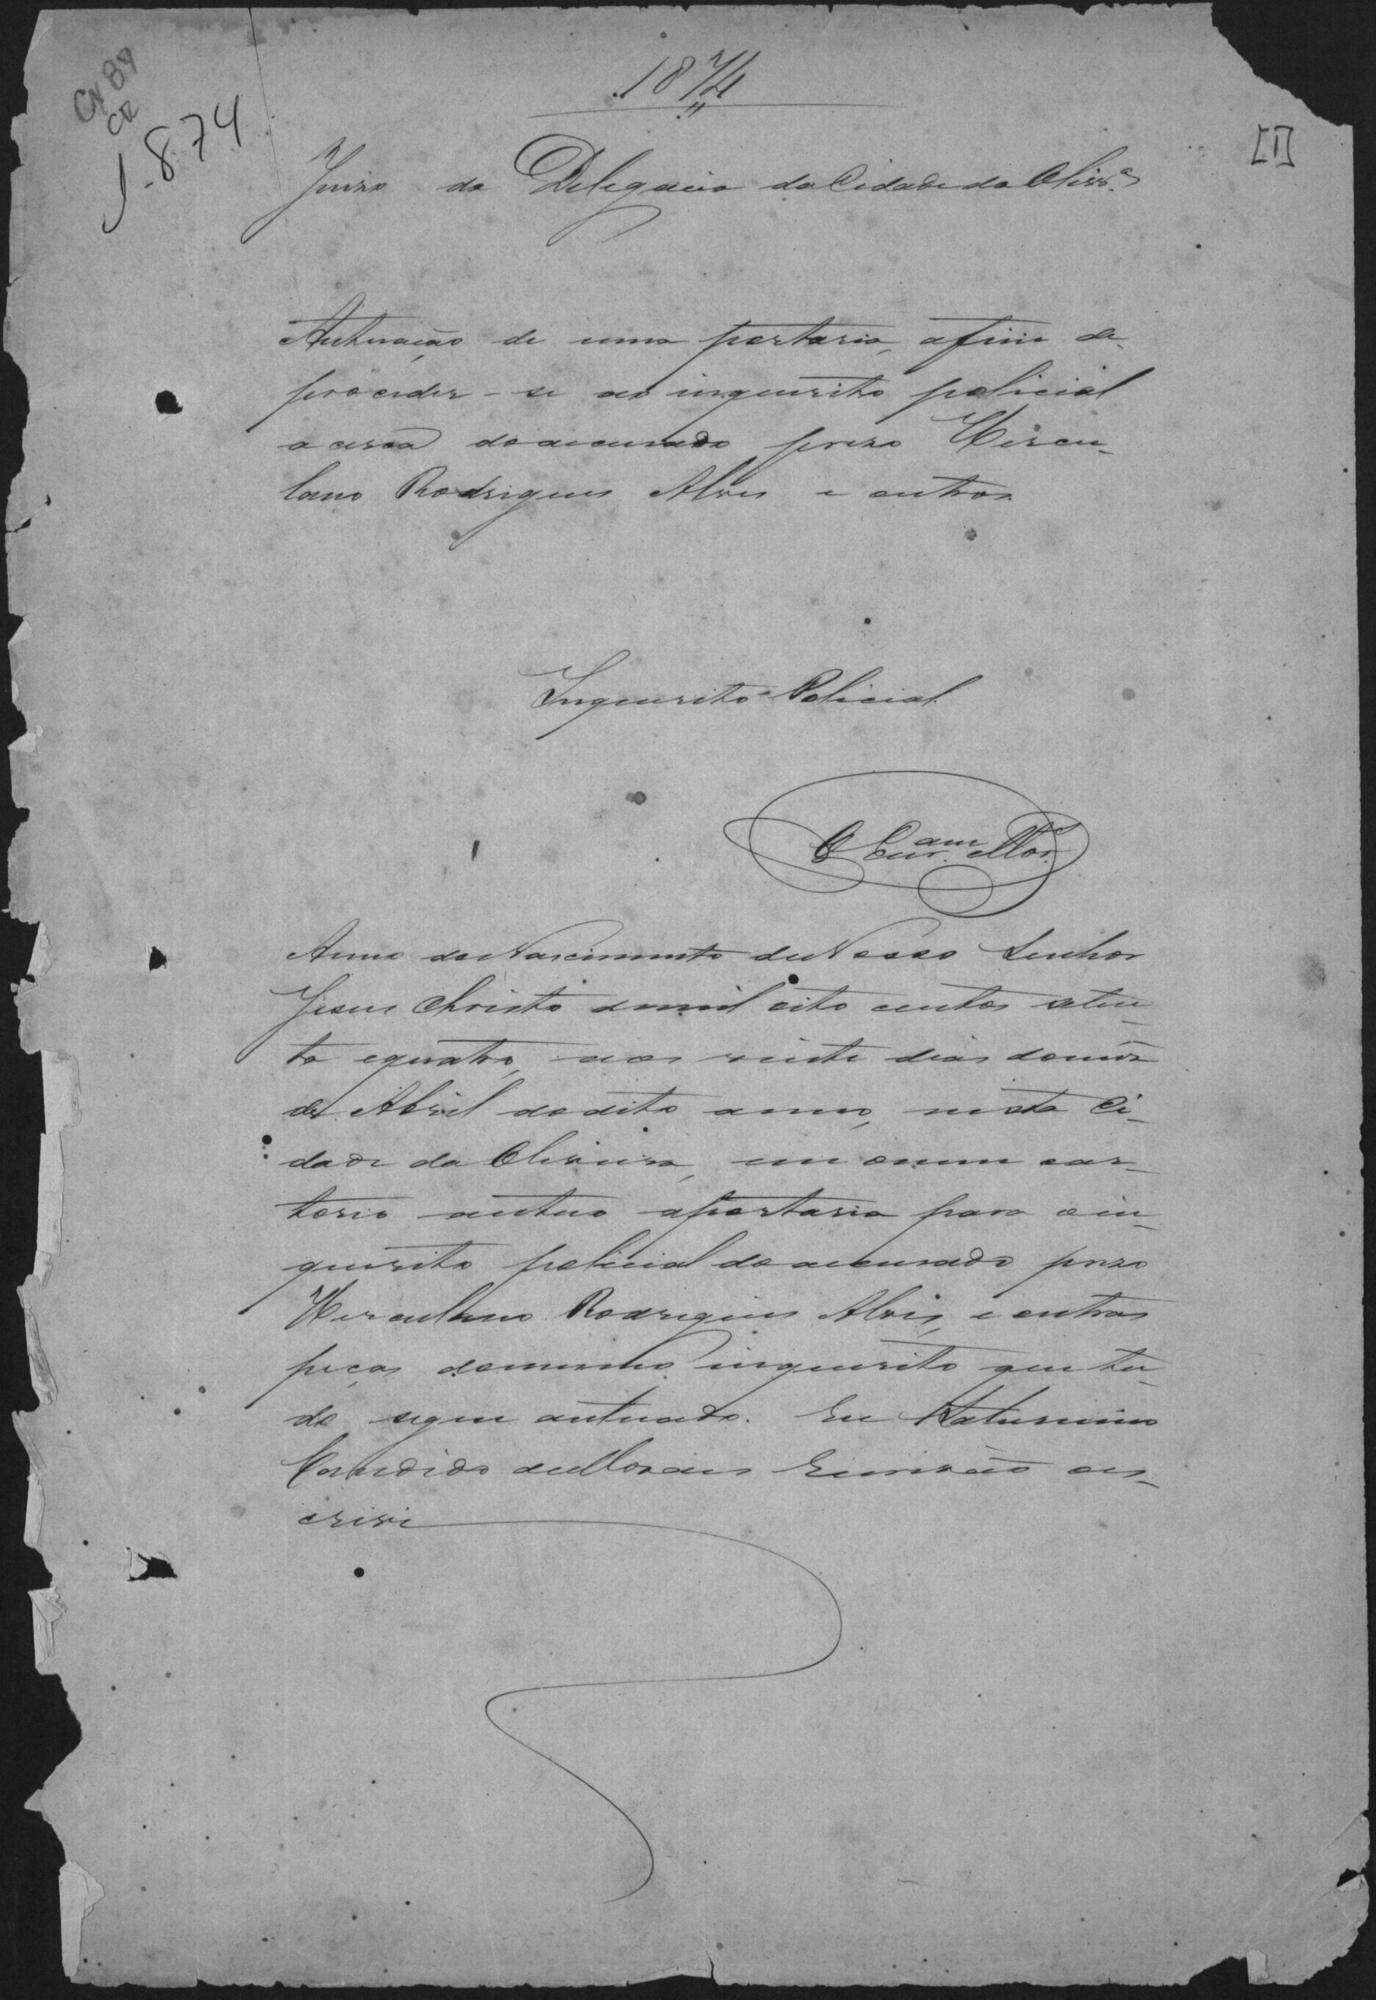 CX 84
CR
1874
1.874
[1]
Juizo da Delegacia da Cidade da Olivr.ª
Autuação de uma portaria, afim de
proceder-se ao inquerito policial
acerca do accusado prezo Hercu-
lano Rodrigues Alves e outros
Inquerito Policial
O Escr.am Mor.
Anno do Nascimento de Nosso Senhor
Jesus Christo de mil oito centos seten-
ta equatro, aos vinte dias do mes
de Abril do dito anno, nesta Ci-
dade da Oliveira, em o meu car-
torio autuo a portaria para o in-
querito policial do accusado prezo
Herculano Rodrigues Alves, e outras
peças do mesmo inquerito que tu-
do segue autuado. Eu Saturnino
Candido de Moraes Escrivão o es-
crevi